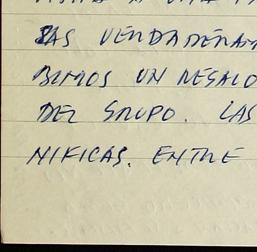 LAS VERDADERAM
BIMOS UN REGALO
DEL GRUPO. LAS
NIFICAS. ENTRE